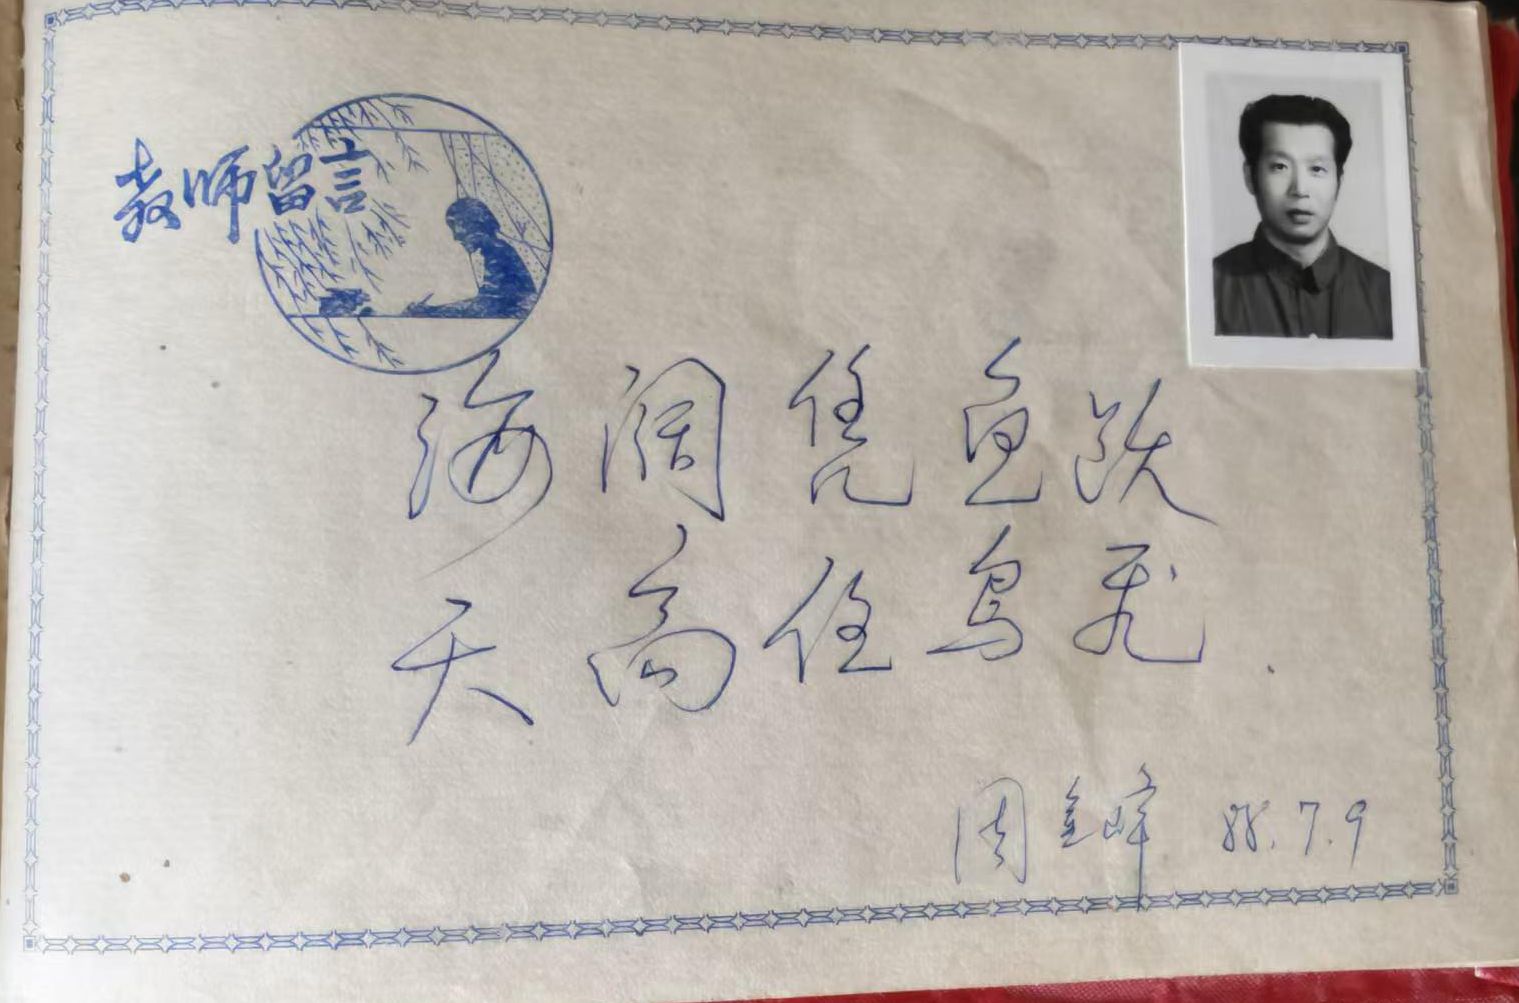 教师留言
海阔凭鱼跃
天高任鸟飞.
周金峰 88.7.9